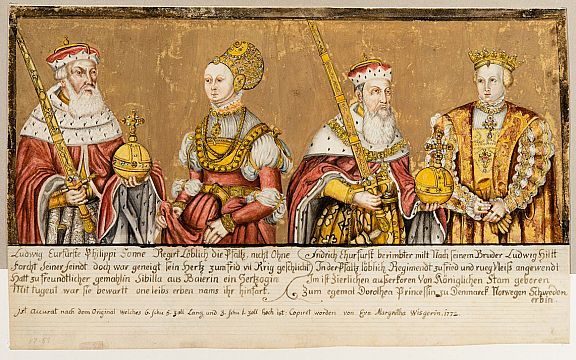 Ludwig Eurfürst Philippi Sonne Regirt Löblich die Pfaltz, nicht Ohne
forcht Seiner feindt doch war geneigt sein Hertz zum frid vil Krig geschlicht
Hatt zu freundlicher gemahlin Sibilla aus Baierin ein Hertzogin
Mitt tugent war sie bewartt one leibs erben nams ihr hinfart.
fridrich Churfürst berimbter milt Nach seinem Bruder Ludwig Hillt
In der Pfaltz löblich Regimendt zu frid und rueg fleiß angewendt
Im ist Zierlichen außerkoren Von Königlichen Stam geboren
Zum egemal Dorothea Princessin zu Denmarck Norwegen Schweden
erbin.
Ist Accurat nach dem Original welches 6. schu 5. zoll Lang und 3. schu 1. zoll hoch ist Copiret worden von Eva Margretha Wisgerin. 1772.